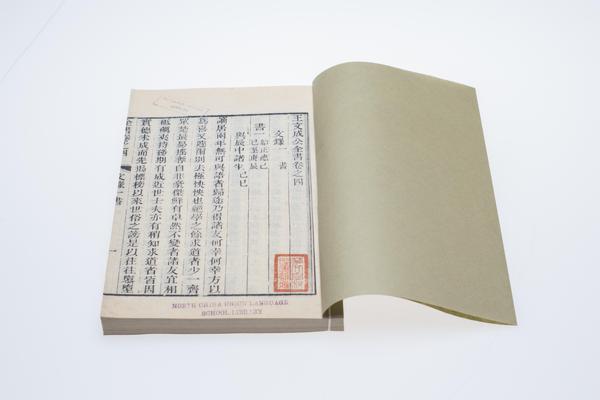 王文成公全書卷之四
文錄一　書
書一 始正德己巳至庚辰
與辰中諸生 己巳
謫居兩年無可與語者歸途乃得諸友何幸何幸方以
為喜又遽爾別去極怏怏也絕學之餘求道者少一齊
眾楚最易搖奪自非豪傑鮮有卓然不變者諸友宜相
砥礪夾持務期有成近世士夫亦有稍知求道者皆因
實德未成而先揭標榜以來世俗之謗是以往往隳墮
全書卷之四　文錄一書　一